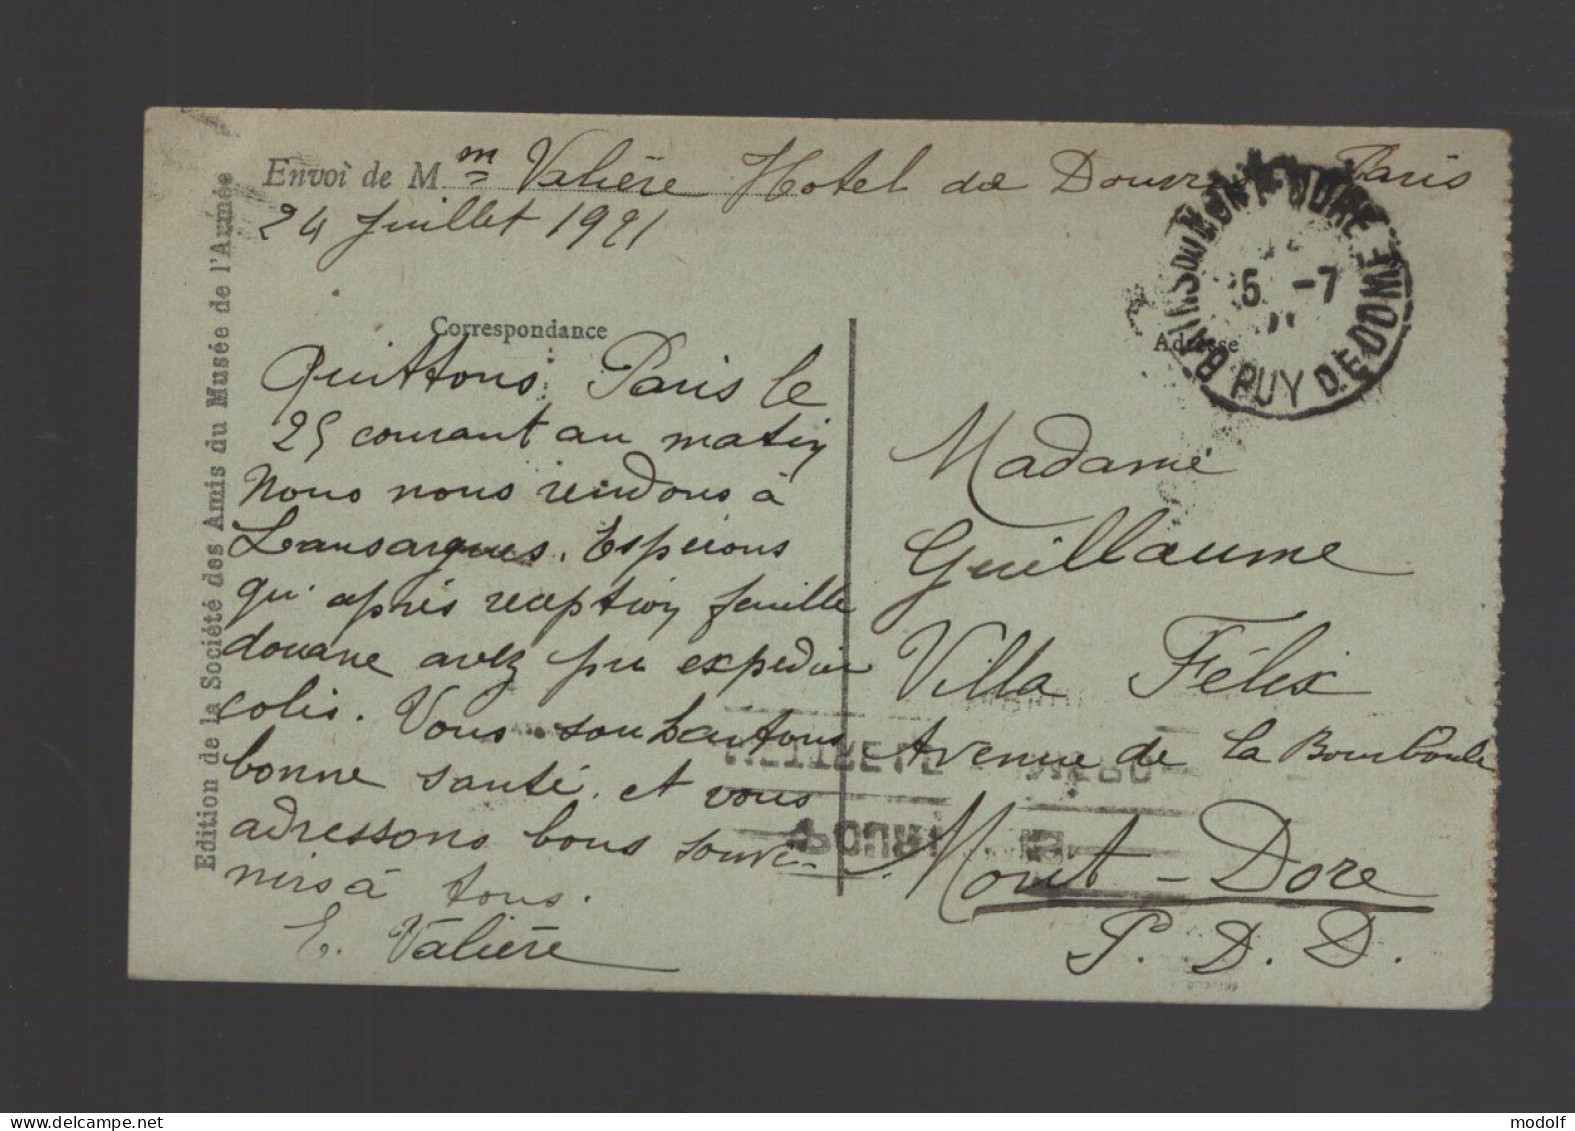 Envoi de Mm Valière Hotel de Paris
24 Juillet 1921
BAINS DU MONT-DORE
5 -7
PUY DE DOME
Correspondance
Adresse
Quittons Paris le
25 courant au matin
Nous nous rendons à
Lansargues. Espérons
qu'après réception feuille
douane avez pu expedier
colis. Vous souhaitons
bonne santé. et vous
adressons bons souve-
nirs à tous.
E. Valière
Madame
Guillaume
Villa Félix
Avenue de La Bourboule
Mont-Dore
P. D. D.
Edition de la Société des Amis du Musée de l'Armée
modolf